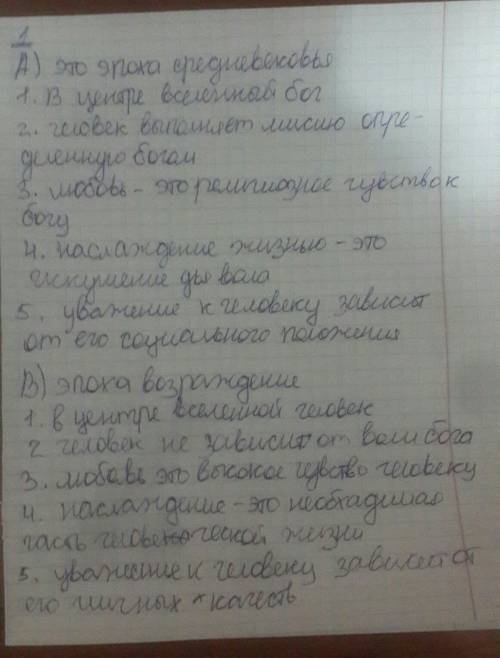 1
А) это эпоха средневековья
1. В центре вселенный бог
2. человек выполняет мисию опре-
деленную богам
3. любовь - это религиозное чувство к
богу
4. наслаждение жизнью - это
искушение дьявола
5. уважение к человеку зависит
от его социального положения
В) эпоха возраждение
1. в центре вселенной человек
2 человек не зависит от воли бога
3. любовь это высокое чувство человеку
4. наслаждение - это необхадимая
часть человеческой жизни
5. уважение к человеку зависеет от
его личных качеств